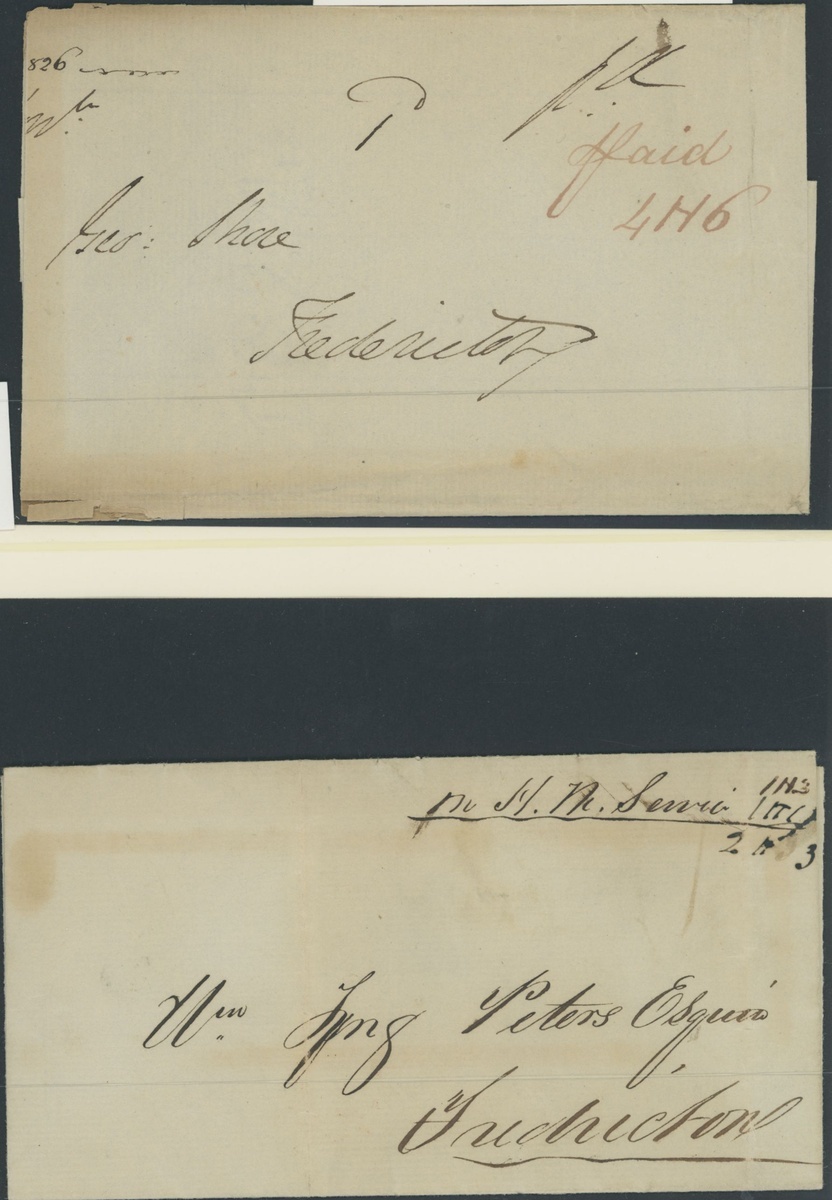 826
P
Paid
4N6
Geo: Shore
Fredericton
On H. M. Servic 1N3
2 N 3
Wm Tyng Peters Esquire
Fredricton